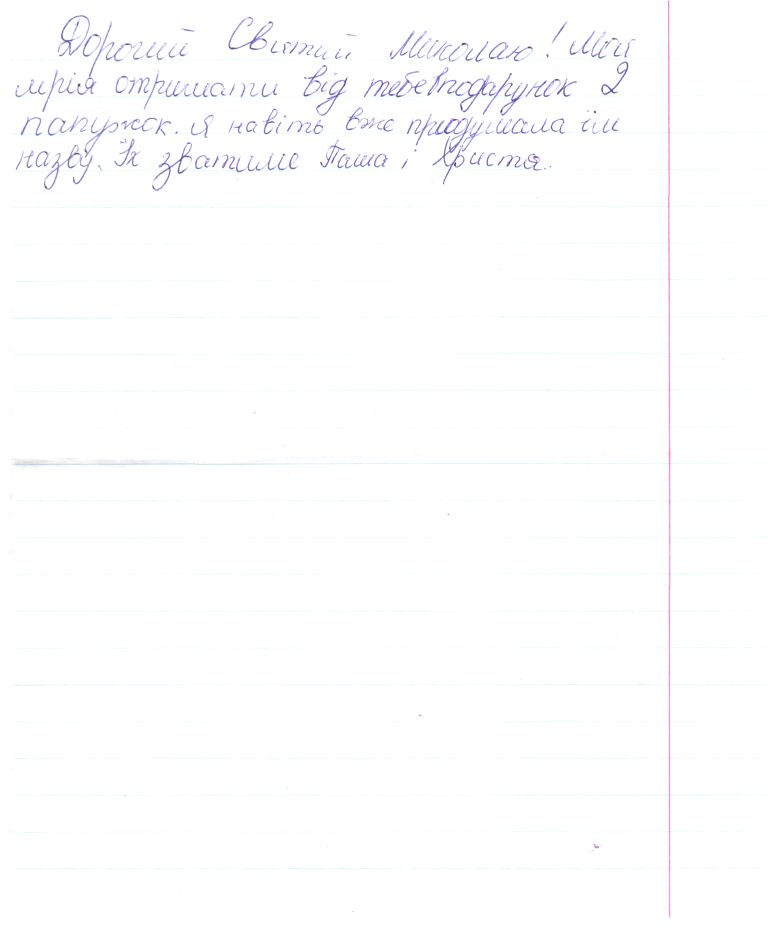 Дорогий Святий Миколаю! Моя
мрія отримати від тебе в подарунок 2
папужок. Я навіть вже придумала їм
назву. Їх зватиме Паша і Христя.